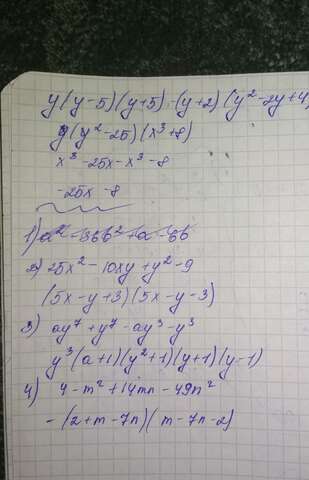 y(y-5)(y+5)-(y+2)(y²-2y+4)
y(y²-25)(x³+8)
x³-25x-x³-8
-25x-8
1) a²-36b²+a-6b
2) 25x²-10xy+y²-9
(5x-y+3)(5x-y-3)
3) ay⁷+y⁷-ay³-y³
y³(a+1)(y²+1)(y+1)(y-1)
4) 4-m²+14mn-49n²
-(2+m-7n)(m-7n-2)